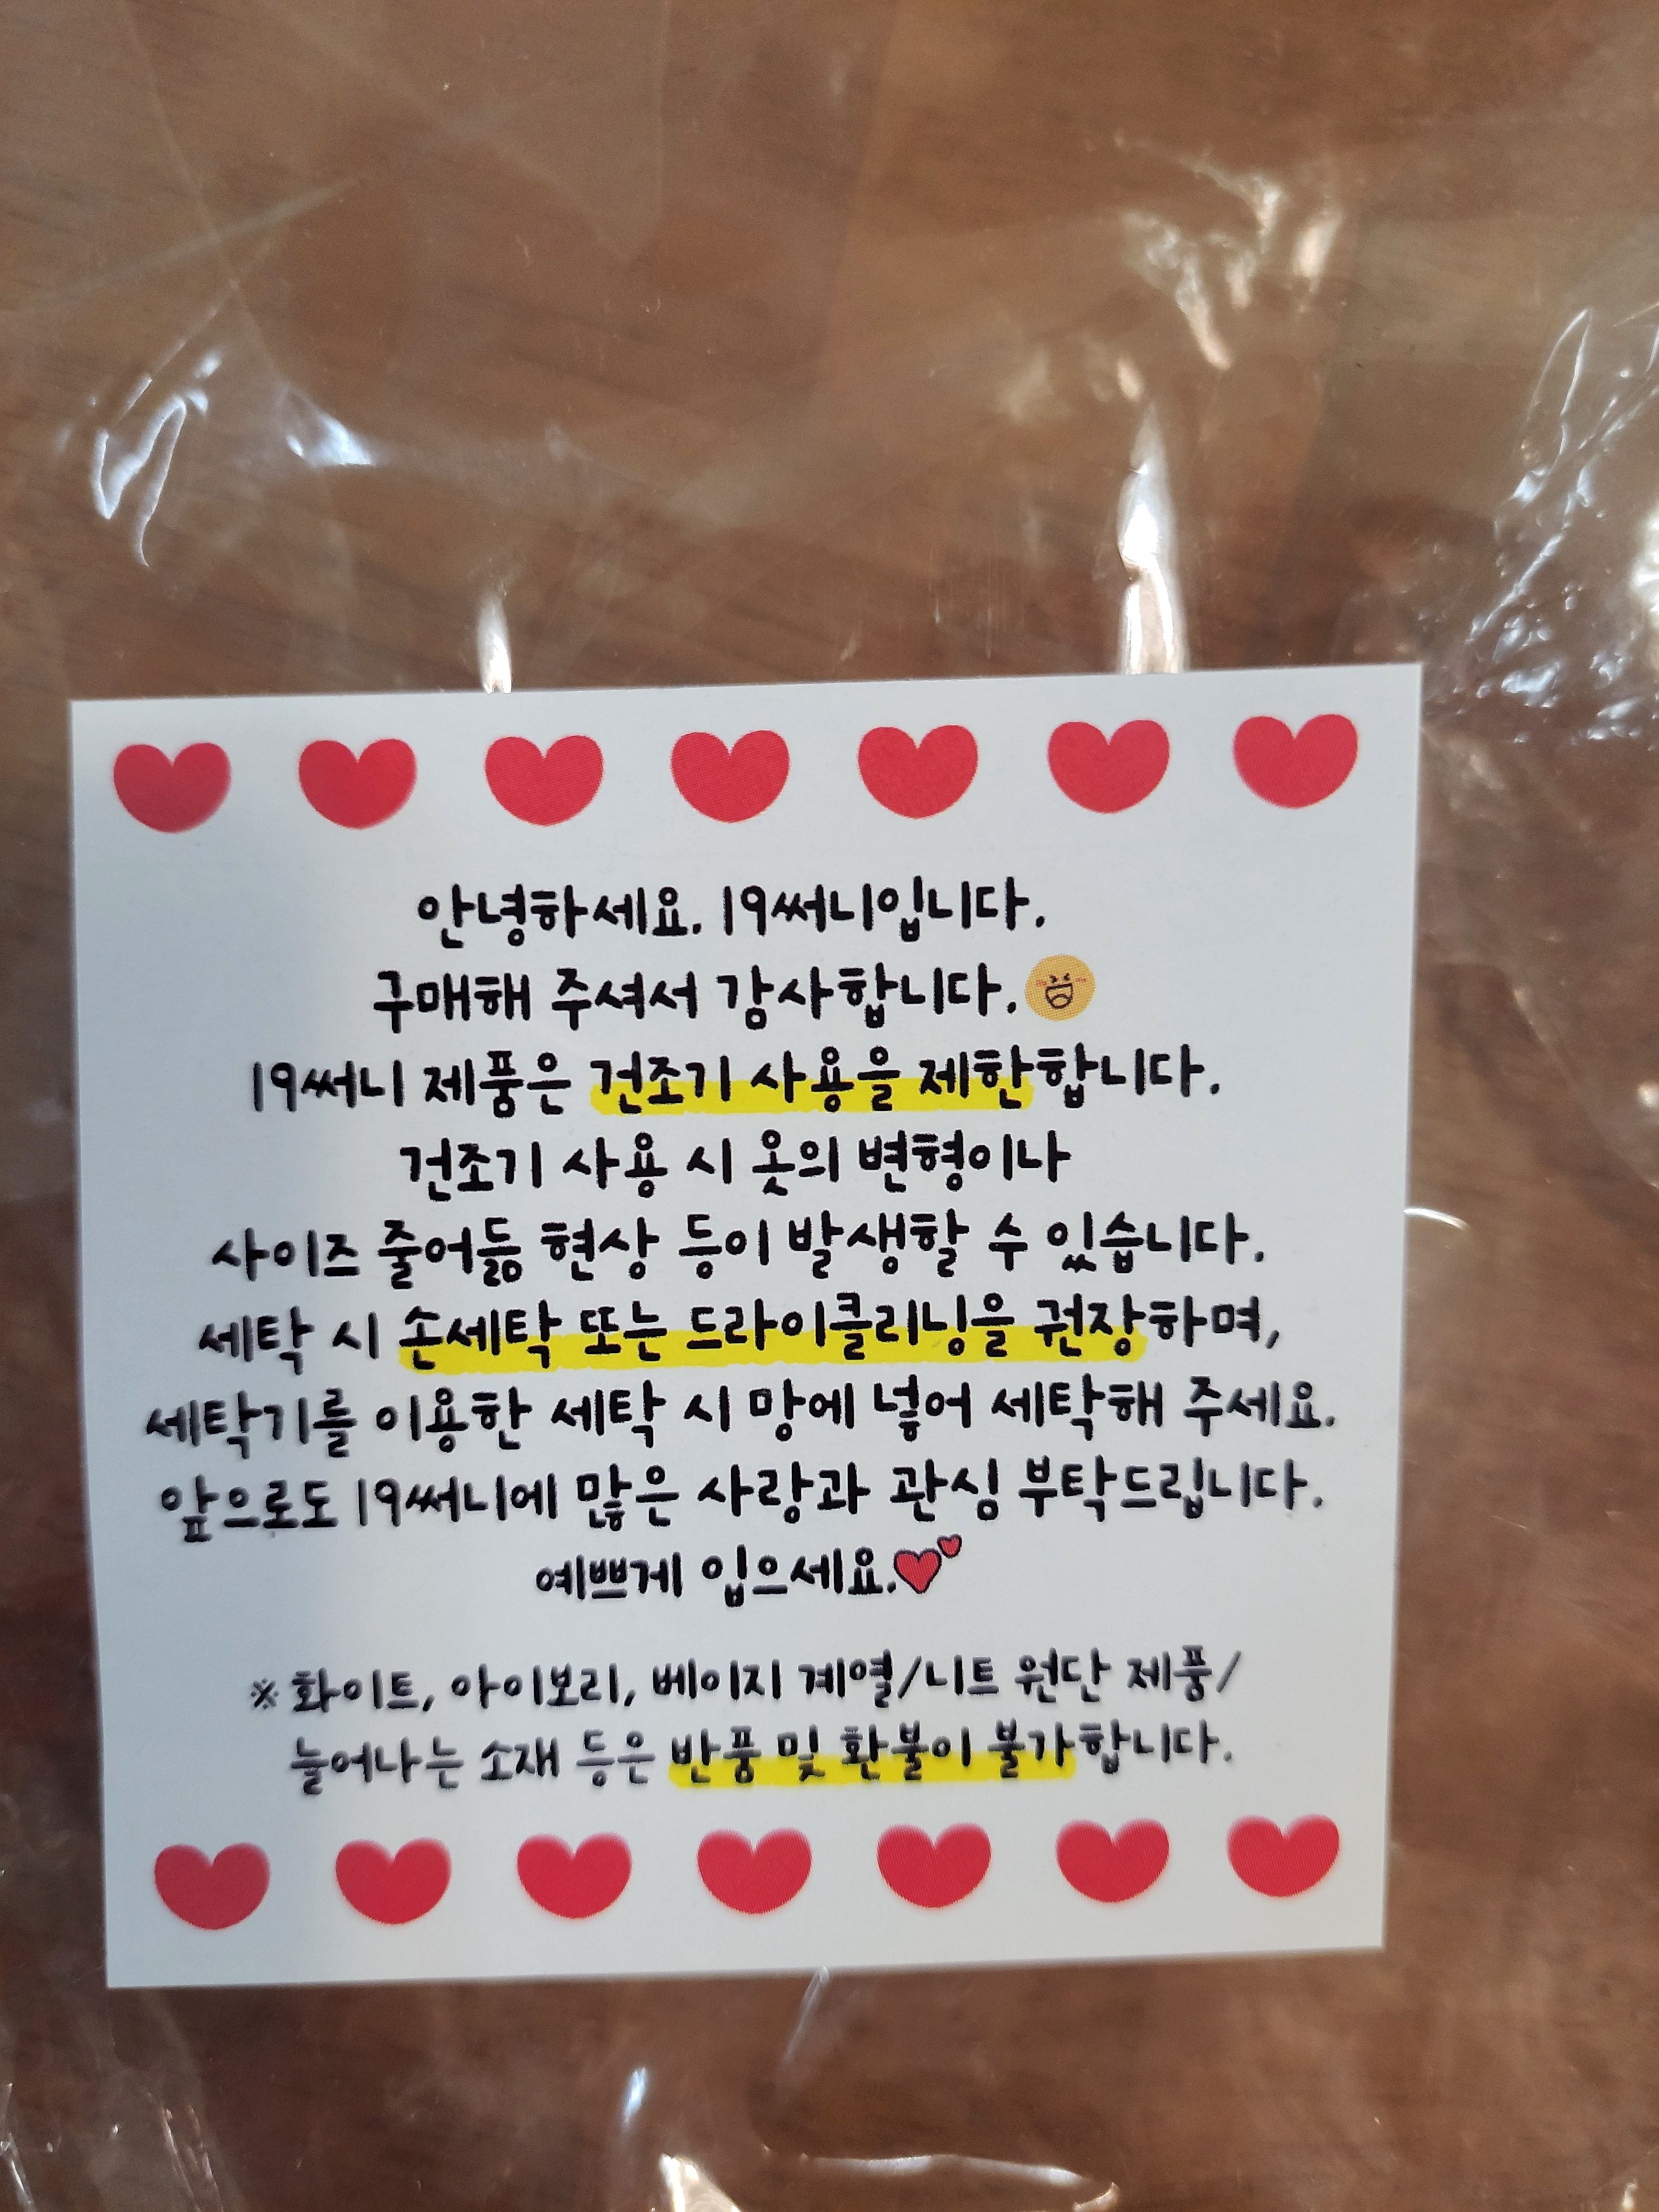 안녕하세요. 19써니입니다.
구매해 주셔서 감사합니다.
19써니 제품은 건조기 사용을 제한합니다.
건조기 사용 시 옷의 변형이나
사이즈 줄어듦 현상 등이 발생할 수 있습니다.
세탁 시 손세탁 또는 드라이클리닝을 권장하며,
세탁기를 이용한 세탁 시 망에 넣어 세탁해 주세요.
앞으로도 19써니에 많은 사랑과 관심 부탁드립니다.
예쁘게 입으세요.
※ 화이트, 아이보리, 베이지 계열/니트 원단 제품/
늘어나는 소재 등은 반품 및 환불이 불가합니다.